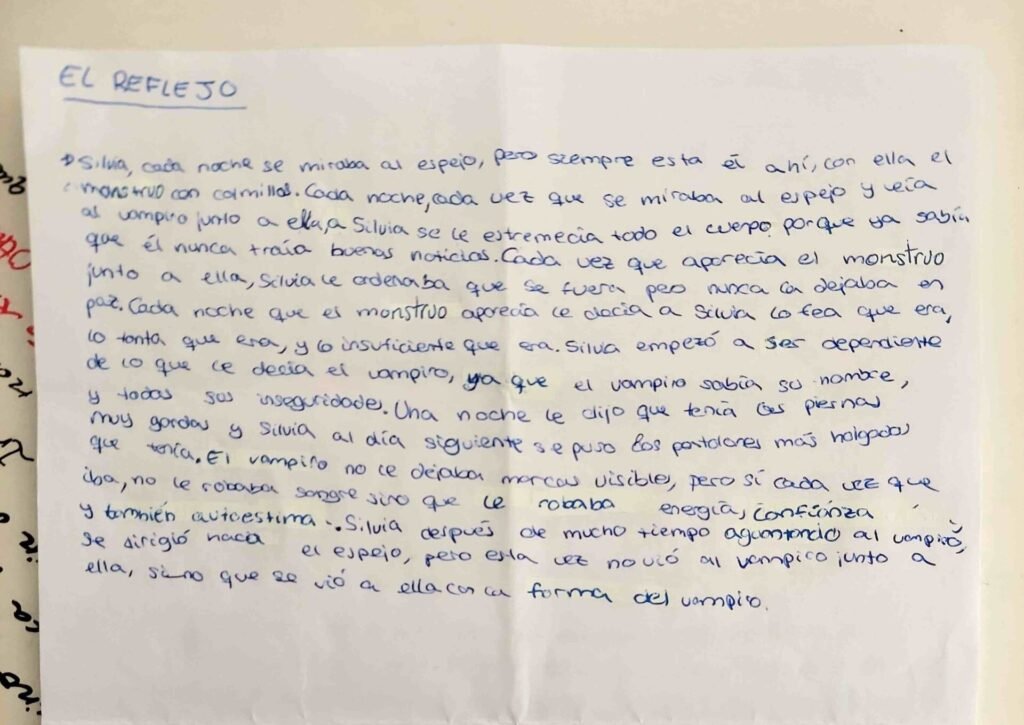 EL REFLEJO
Silvia, cada noche se miraba al espejo, pero siempre esta él ahí, con ella el
monstruo con colmillos. Cada noche, cada vez que se miraba al espejo y veía
al vampiro junto a ella, a Silvia se le estremecia todo el cuerpo porque ya sabía
que él nunca traía buenas noticias. Cada vez que aparecia el monstruo
junto a ella, Silvia le ordenaba que se fuera pero nunca la dejaba en
paz. Cada noche que el monstruo aparecía le decia a Silvia lo fea que era,
lo tonta que era, y lo insuficiente que era. Silvia empezó a ser dependiente
de lo que le decía el vampiro, ya que el vampiro sabía su nombre,
y todas sus inseguridades. Una noche le dijo que tenía las piernas
muy gordas y Silvia al día siguiente se puso los pantalones más holgados
que tenía. El vampiro no le dejaba marcas visibles, pero sí cada vez que
iba, no le robaba sangre sino que le robaba energía, confianza
y también autoestima. Silvia después de mucho tiempo aguantando al vampiro,
se dirigió hacia el espejo, pero esta vez no vió al vampiro junto a
ella, sino que se vió a ella con la forma del vampiro.